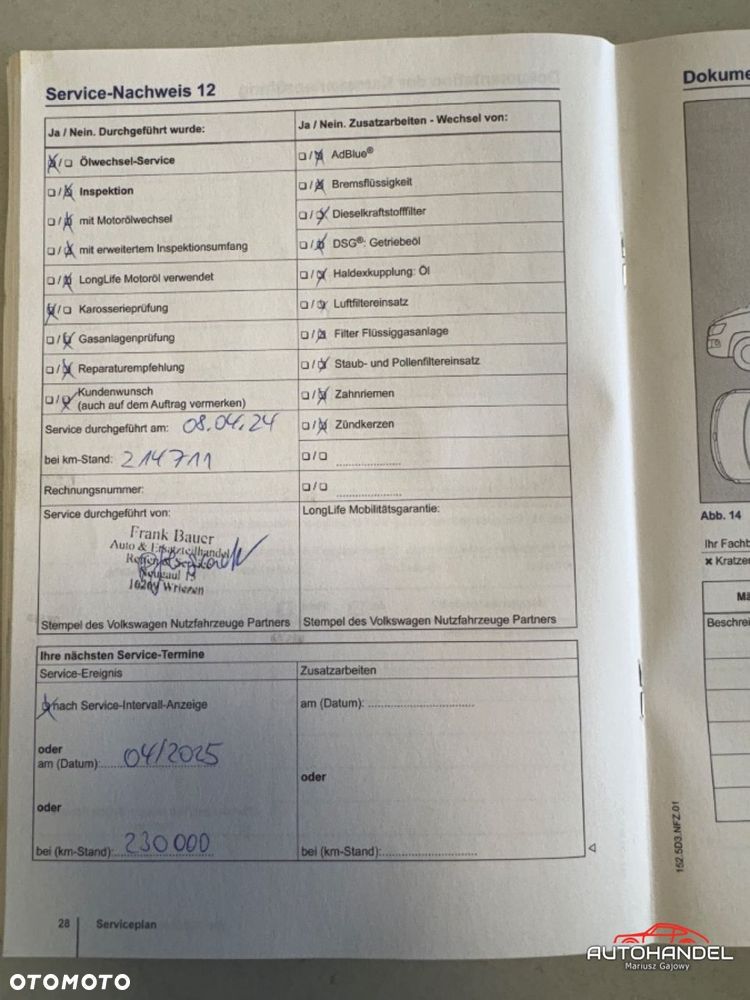 Service-Nachweis 12
Ja / Nein. Durchgeführt wurde:
☒/☐ Ölwechsel-Service
☐/☒ Inspektion
☐/☒ mit Motorölwechsel
☐/☒ mit erweitertem Inspektionsumfang
☐/☒ LongLife Motoröl verwendet
☒/☐ Karosserieprüfung
☐/☒ Gasanlagenprüfung
☐/☒ Reparaturempfehlung
☐/☒ Kundenwunsch
(auch auf dem Auftrag vermerken)
Service durchgeführt am: 08.04.24
bei km-Stand: 214711
Rechnungsnummer:
Service durchgeführt von:
Frank Bauer
Auto & Ersatzteilhandel
16269 Wriezen
Stempel des Volkswagen Nutzfahrzeuge Partners
Ja / Nein. Zusatzarbeiten - Wechsel von:
☐/☒ AdBlue®
☐/☒ Bremsflüssigkeit
☐/☒ Dieselkraftstofffilter
☐/☒ DSG®: Getriebeöl
☐/☒ Haldexkupplung: Öl
☐/☒ Luftfiltereinsatz
☐/☒ Filter Flüssiggasanlage
☐/☒ Staub- und Pollenfiltereinsatz
☐/☒ Zahnriemen
☐/☒ Zündkerzen
☐/☐ ....................
☐/☐ ....................
LongLife Mobilitätsgarantie:
Stempel des Volkswagen Nutzfahrzeuge Partners
Ihre nächsten Service-Termine
Service-Ereignis
☒ nach Service-Intervall-Anzeige
oder
am (Datum): 04/2025
oder
bei (km-Stand): 230000
Zusatzarbeiten
am (Datum): ..............................
oder
bei (km-Stand): ..............................
28 Serviceplan
152.5D3.NFZ.01
Dokume
Abb. 14
Ihr Fachb
✖ Kratzer
Mä
Beschrei
OTOMOTO
AUTOHANDEL
Mariusz Gajowy